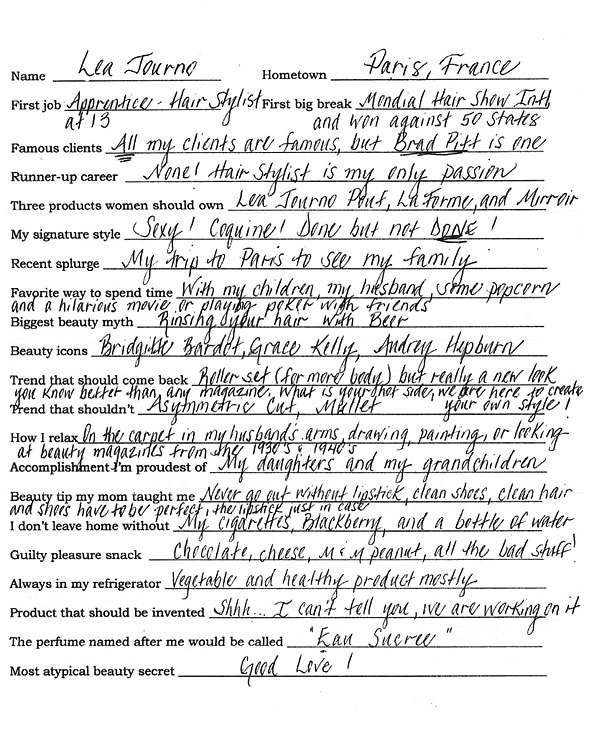 Name Lea Journo Hometown Paris, France
First job Apprentice - Hair Stylist First big break Mondial Hair Show Int'l
at 13 and won against 50 states
Famous clients All my clients are famous, but Brad Pitt is one
Runner-up career None! Hair Stylist is my only passion
Three products women should own Lea Journo Pouf, La Forme, and Mirroir
My signature style Sexy! Coquine! Done but not DONE!
Recent splurge My trip to Paris to see my family
Favorite way to spend time With my children, my husband, some popcorn
and a hilarious movie or playing poker with friends
Biggest beauty myth Rinsing your hair with Beer
Beauty icons Bridgitte Bardot, Grace Kelly, Audrey Hepburn
Trend that should come back Roller set (for more body) but really a new look
you know better than any magazine. What is your hot side, we are here to create
Trend that shouldn't Asymmetric Cut, Mullet your own style!
How I relax On the carpet in my husband's arms, drawing, painting, or looking
at beauty magazines from the 1930's & 1940's
Accomplishment I'm proudest of My daughters and my grandchildren
Beauty tip my mom taught me Never go out without lipstick, clean shoes, clean hair
and shoes have to be perfect, the lipstick just in case
I don't leave home without My cigarettes, Blackberry, and a bottle of water
Guilty pleasure snack Chocolate, cheese, M & M peanut, all the bad stuff!
Always in my refrigerator Vegetable and healthy product mostly
Product that should be invented Shhh... I can't tell you, we are working on it
The perfume named after me would be called "Eau Sucree"
Most atypical beauty secret Good Love!